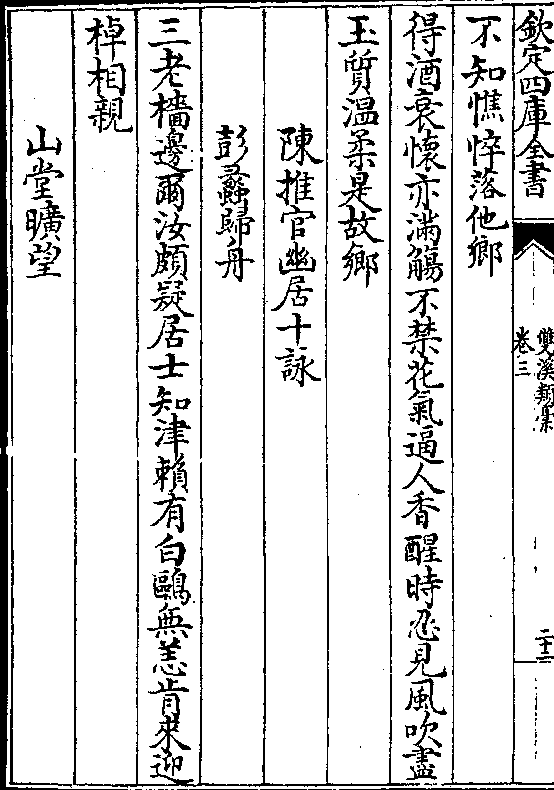 欽定四庫全書
雙溪類稾
卷三
二十二
不知憔悴落他鄉
得酒哀懷亦滿觴不禁花氣逼人香醒時忍見風吹盡
玉質温柔是故鄉
陳推官幽居十詠
彭蠡歸舟
三老檣邊爾汝頗疑居士知津賴有白鷗無恙肯來迎
棹相親
山堂曠望